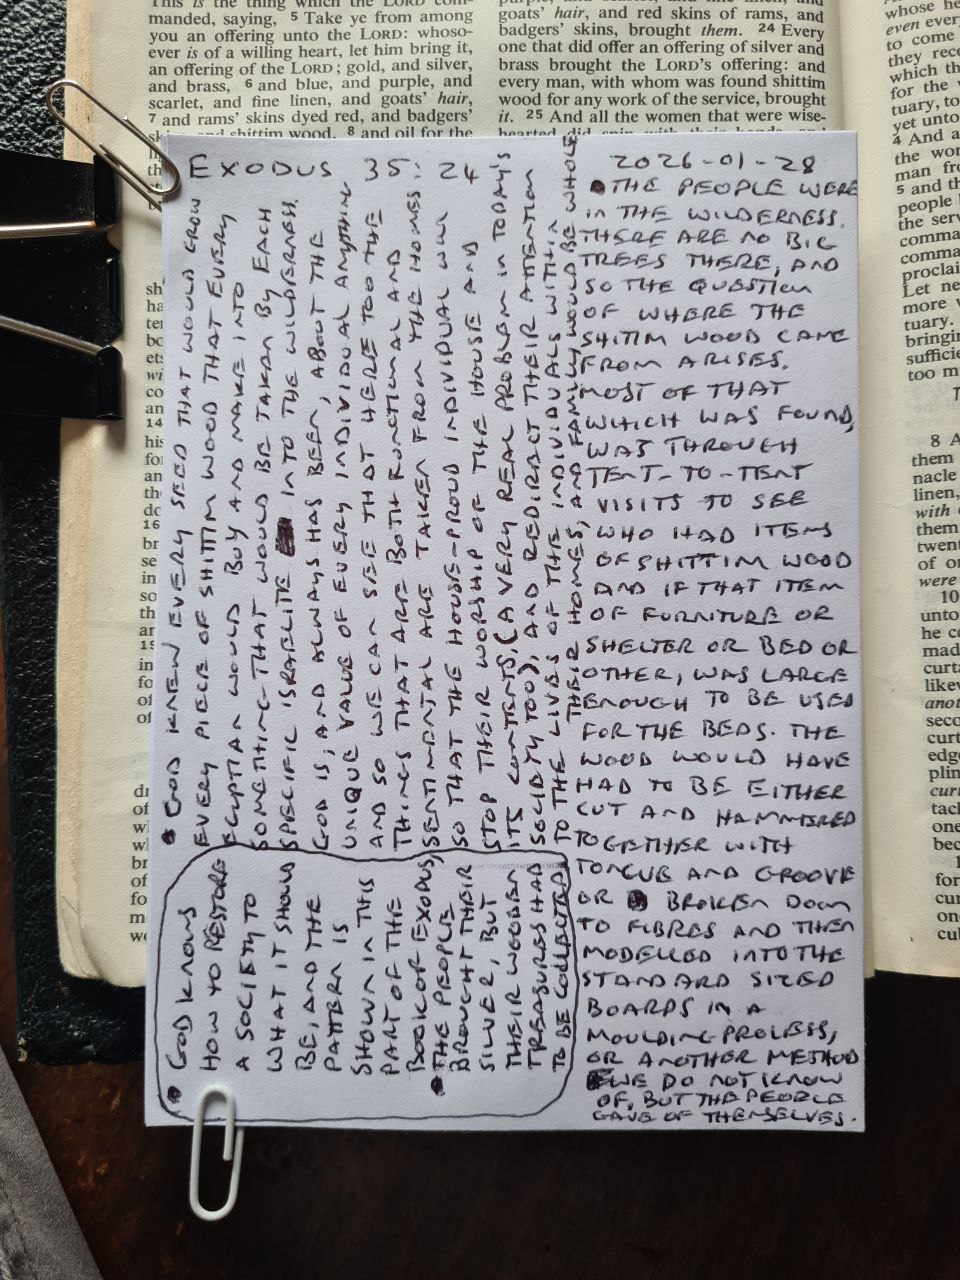 This is the thing which the LORD com-
manded, saying, 5 Take ye from among
you an offering unto the LORD: whoso-
ever is of a willing heart, let him bring it,
an offering of the LORD; gold, and silver,
and brass, 6 and blue, and purple, and
scarlet, and fine linen, and goats' hair,
7 and rams' skins dyed red, and badgers'
and shittim wood. 8 and oil for the
goats' hair, and red skins of rams, and
badgers' skins, brought them. 24 Every
one that did offer an offering of silver and
brass brought the LORD's offering: and
every man, with whom was found shittim
wood for any work of the service, brought
it. 25 And all the women that were wise-
hearted did spin with their hands, and
EXODUS 35:24
2026-01-28
THE PEOPLE WERE
IN THE WILDERNESS.
THERE ARE NO BIG
TREES THERE, AND
SO THE QUESTION
OF WHERE THE
SHITTIM WOOD CAME
FROM ARISES.
MOST OF THAT
WHICH WAS FOUND,
WAS THROUGH
TENT-TO-TENT
VISITS TO SEE
WHO HAD ITEMS
OF SHITTIM WOOD
AND IF THAT ITEM
OF FURNITURE OR
SHELTER OR BED OR
OTHER, WAS LARGE
ENOUGH TO BE USED
FOR THE BEDS. THE
WOOD WOULD HAVE
HAD TO BE EITHER
CUT AND HAMMERED
TOGETHER WITH
TONGUE AND GROOVE
OR BROKEN DOWN
TO FIBRES AND THEN
MODELLED INTO THE
STANDARD SIZED
BOARDS IN A
MOULDING PROCESS,
OR ANOTHER METHOD
WE DO NOT KNOW
OF, BUT THE PEOPLE
GAVE OF THEMSELVES.
• GOD KNEW EVERY SEED THAT WOULD GROW
EVERY PIECE OF SHITTIM WOOD THAT EVERY
EGYPTIAN WOULD BUY AND MAKE INTO
SOMETHING THAT WOULD BE TAKEN BY EACH
SPECIFIC ISRAELITE INTO THE WILDERNESS.
GOD IS, AND ALWAYS HAS BEEN, ABOUT THE
UNIQUE VALUE OF EVERY INDIVIDUAL ANYTHING
AND SO WE CAN SEE THAT HERE TOO THE
THINGS THAT ARE BOTH FUNCTIONAL AND
SENTIMENTAL ARE TAKEN FROM THE HOMES
SO THAT THE HOUSE-PROUD INDIVIDUAL WILL
STOP THEIR WORSHIP OF THE HOUSE AND
ITS CONTENTS, (A VERY REAL PROBLEM IN TODAY'S
SOCIETY TOO), AND REDIRECT THEIR ATTENTION
TO THE LIVES OF THE INDIVIDUALS WITHIN
THEIR HOMES, AND FAMILY WOULD BE WHOLE
• GOD KNOWS
HOW TO RESTORE
A SOCIETY TO
WHAT IT SHOULD
BE, AND THE
PATTERN IS
SHOWN IN THIS
PART OF THE
BOOK OF EXODUS,
• THE PEOPLE
BROUGHT THEIR
SILVER, BUT
THEIR WOODEN
TREASURES HAD
TO BE COLLECTED.